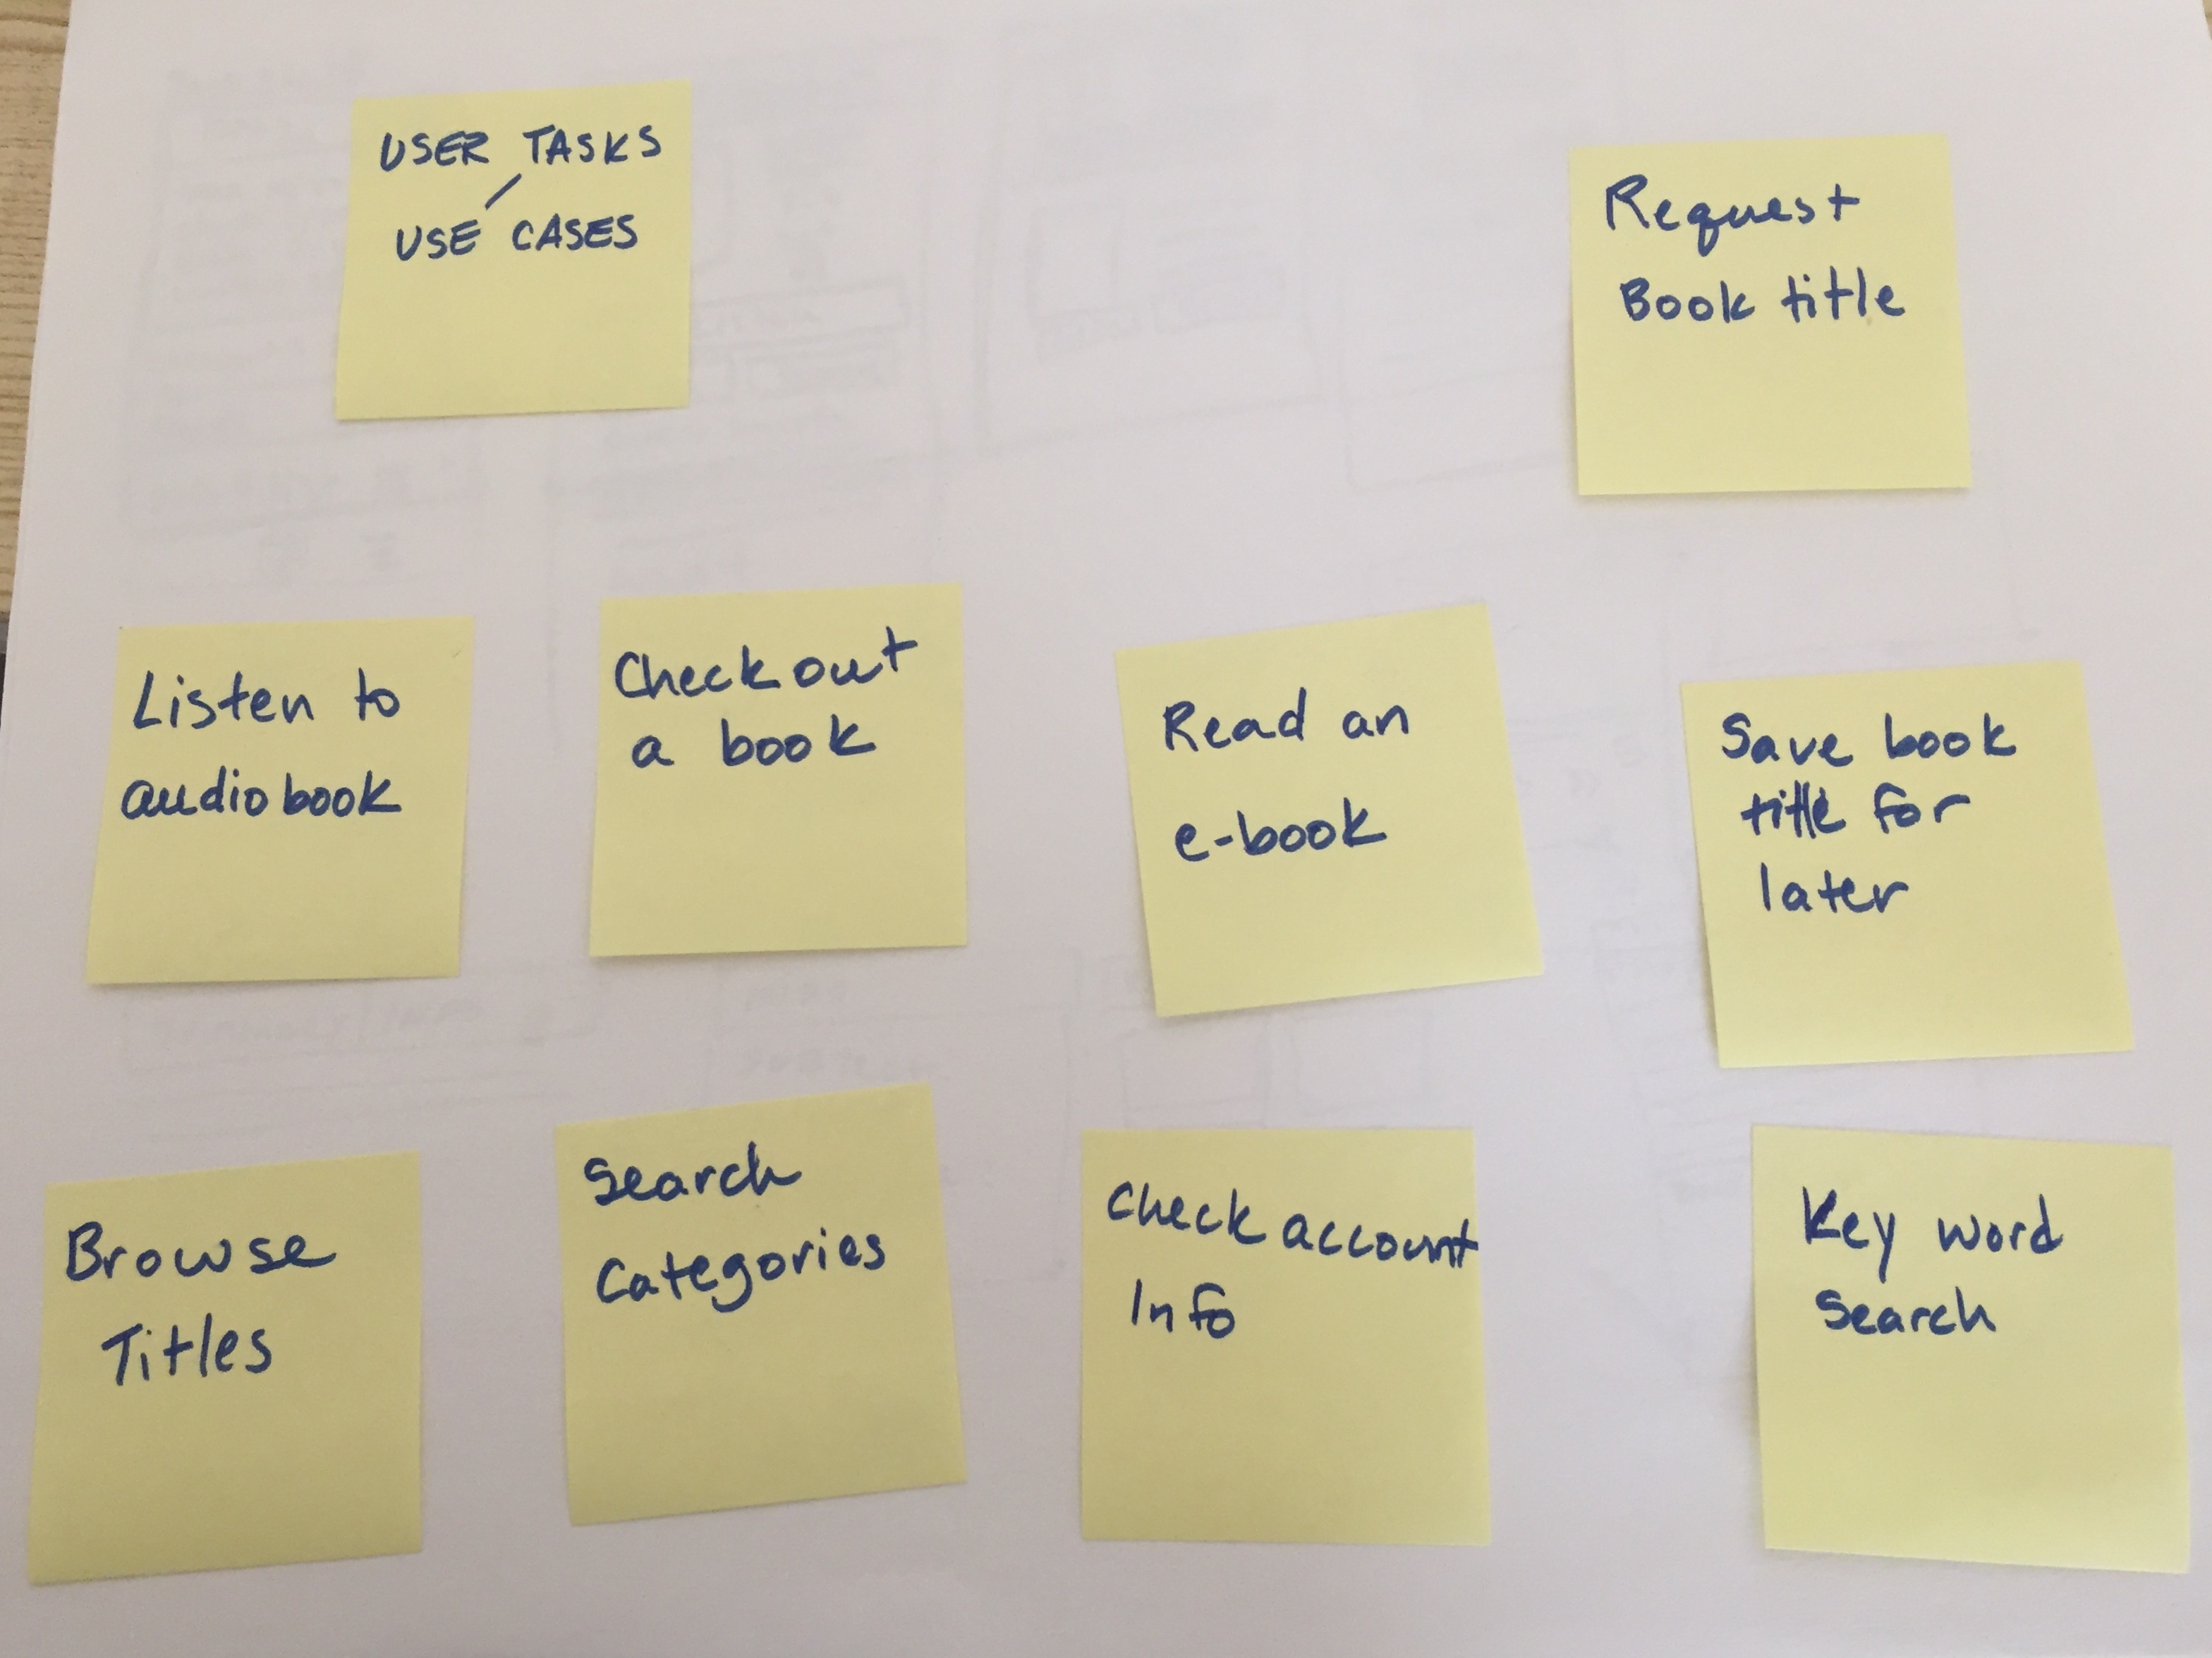 USER TASKS
/
USE CASES
Request
Book title
Listen to
audiobook
Check out
a book
Read an
e-book
Save book
title for
later
Browse
Titles
Search
Categories
Check account
Info
Key word
Search